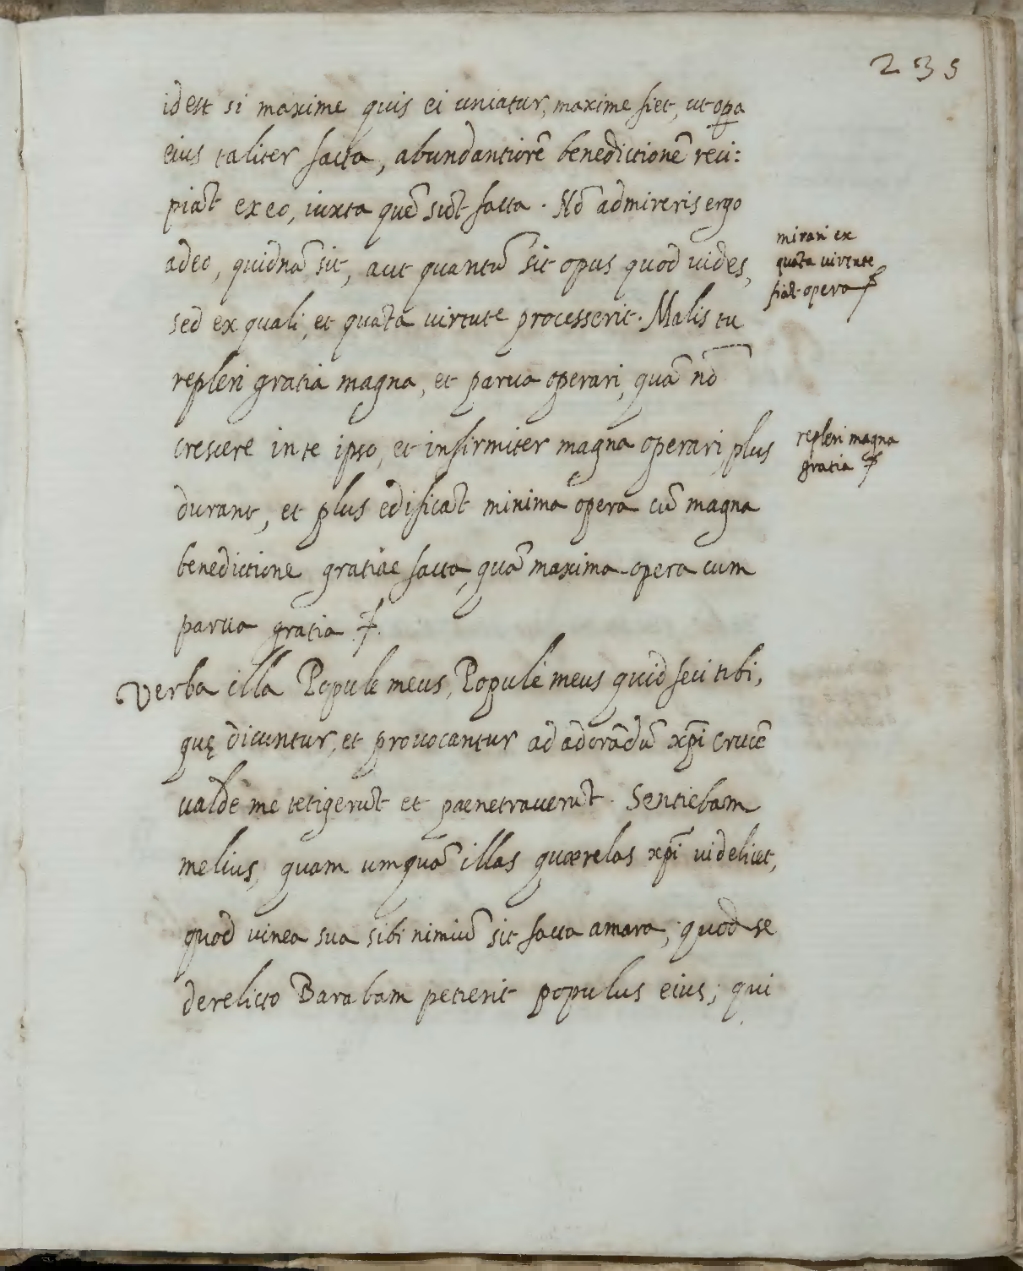 235
idest si maxime quis ei uniatur, maxime fiet, ut opa
eius taliter facta, abundantiorẽ benedictionẽ reci:
piãt ex eo, iuxta quẽ sũt facta. Nõ admireris ergo
adeo, quidnã sit, aut quantũ sit opus quod vides,
sed ex quali, et quãta virtute processerit. Malis tu
repleri gratia magna, et parva operari, quã nõ
crescere in te ipso, et infirmiter magna operari, plus
durant, et plus edificãt minima opera cũ magna
benedictione gratiae facta, quã maxima opera cum
parva gratia .f.
Verba illa Popule meus, Popule meus quid feci tibi,
quę dicuntur, et provocantur ad adorãdũ xp̃i crucẽ
valde me tetigerũt et paenetraverũt. Sentiebam
melius, quam umquã illas quaerelas xp̃i videlicet,
quod vinea sua sibi nimiũ sit facta amara, quod se
derelicto Barabam petierit populus eius; qui
mirari ex
quãta virtute
fiãt opera f
repleri magna
gratia f